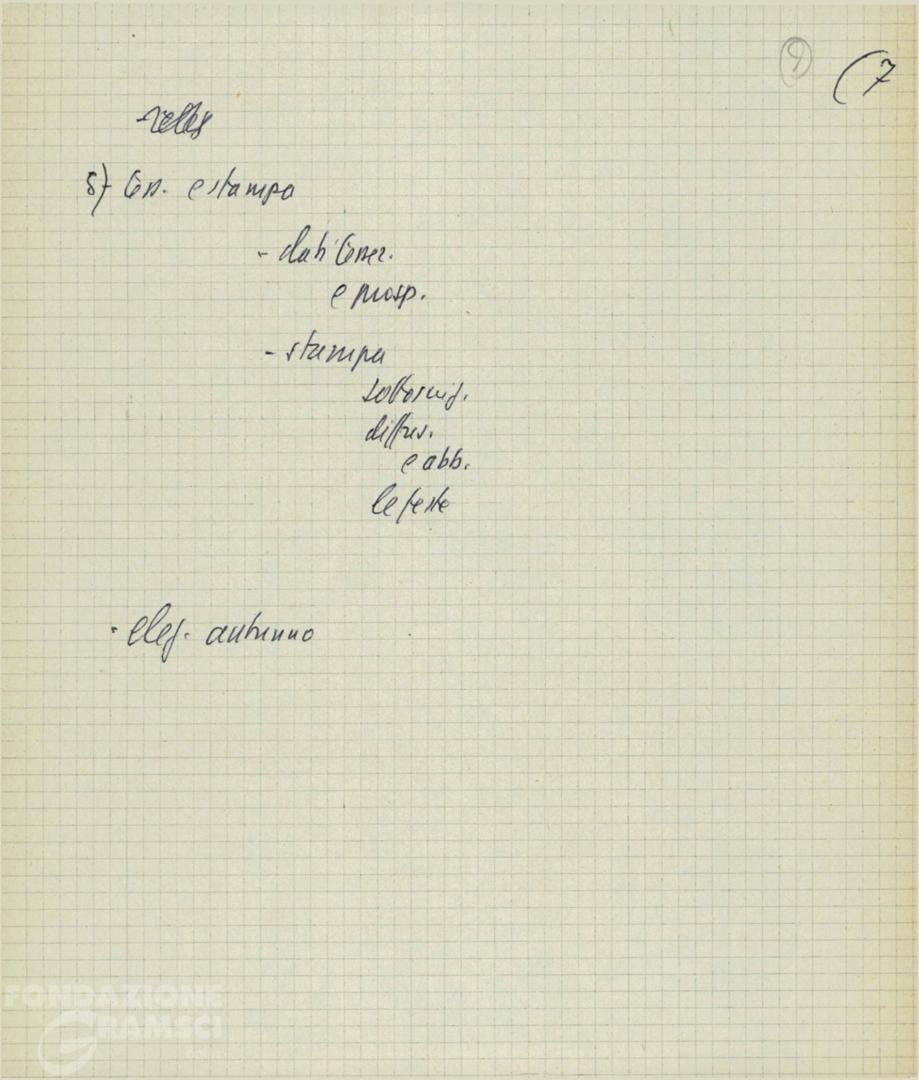 9 (7
5) Tess. e stampa
- dati tesser.
e prosp.
- stampa
sottoscriz.
diffus.
e abb.
le feste
- elez. autunno
FONDAZIONE
GRAMSCI